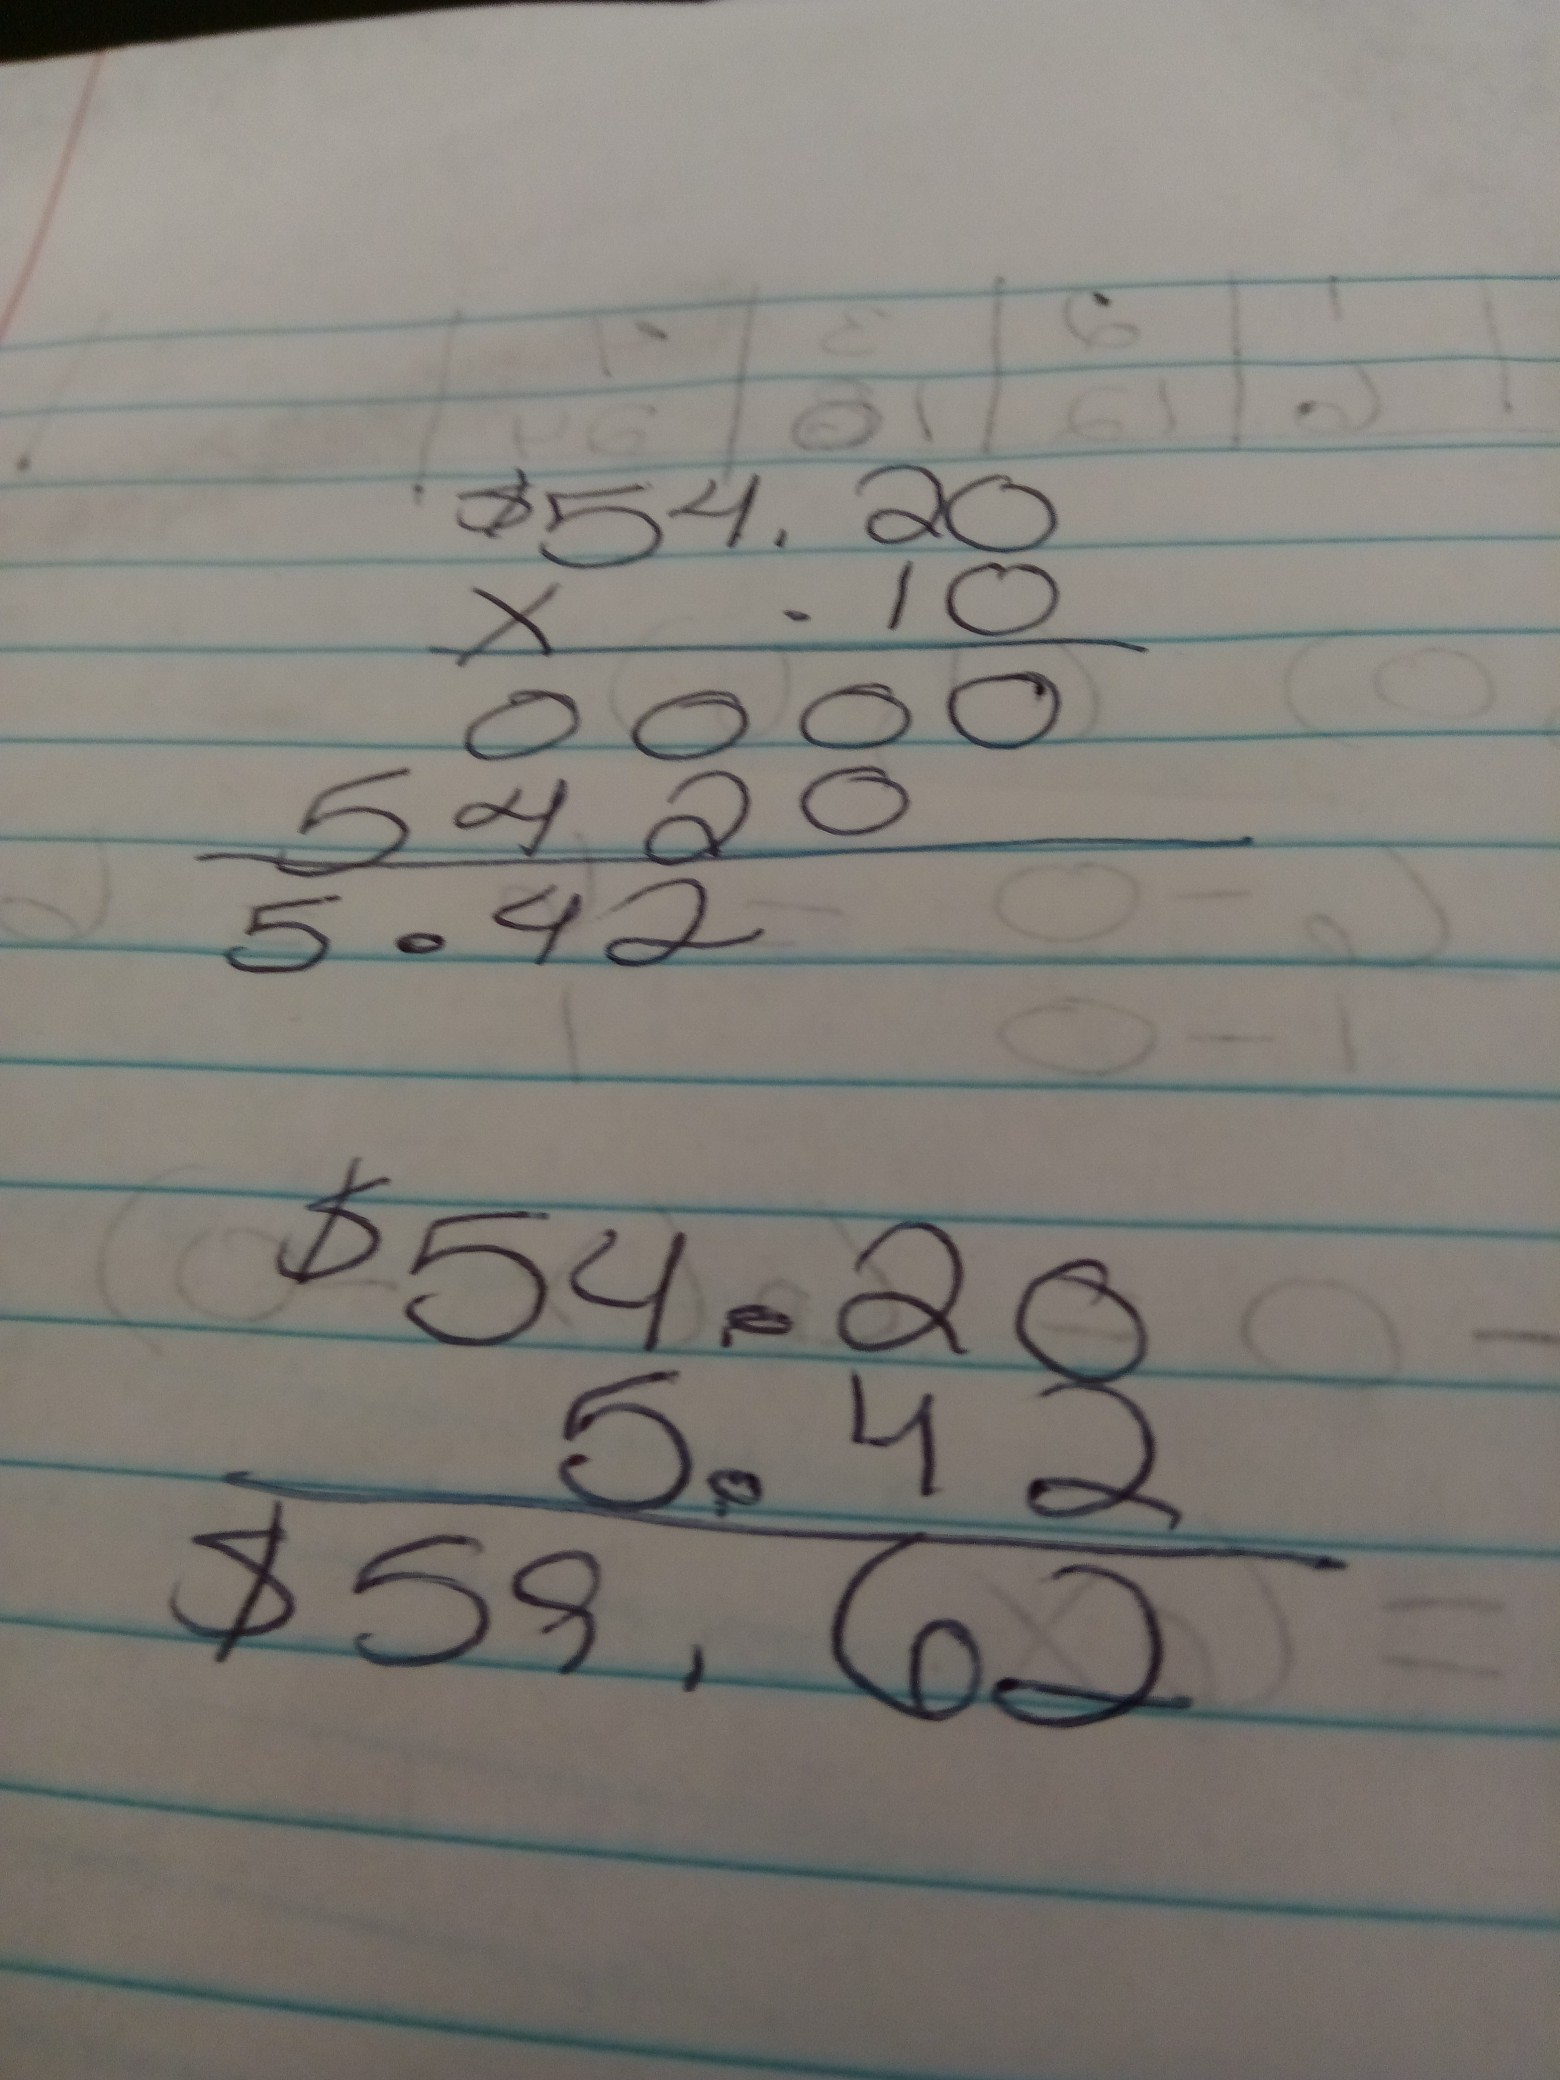 $54.20
x .10
0000
5420
5.42
$54.20
5.42
$59.62